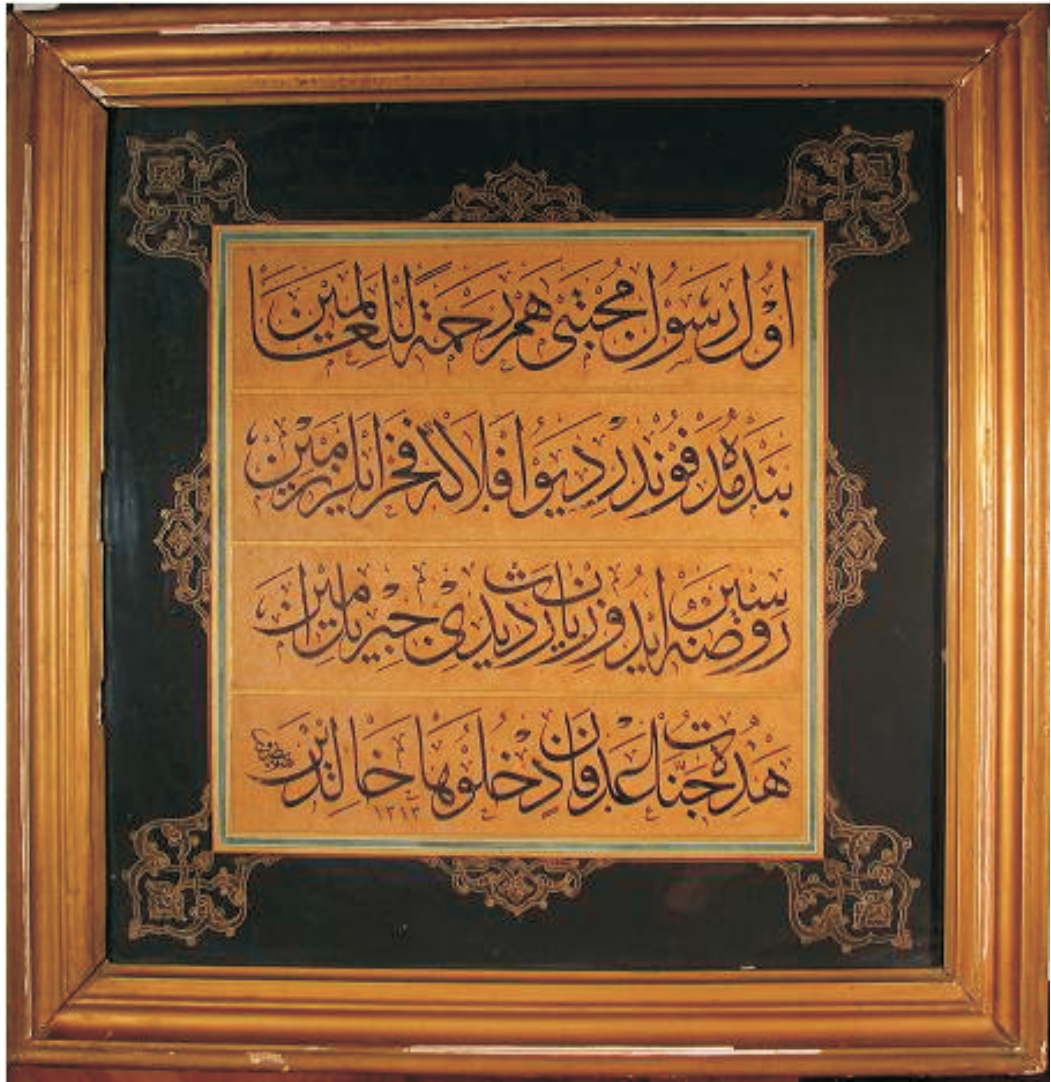 اول رسول مجتبى هم رحمة للعالمين
بنده مدفوندر ديو افلاكه فخر ايلر زمين
روضه‌سين ايدوب زيارت ديدى جبريل امين
هذه جنات عدن فادخلوها خالدين
١٣١٣